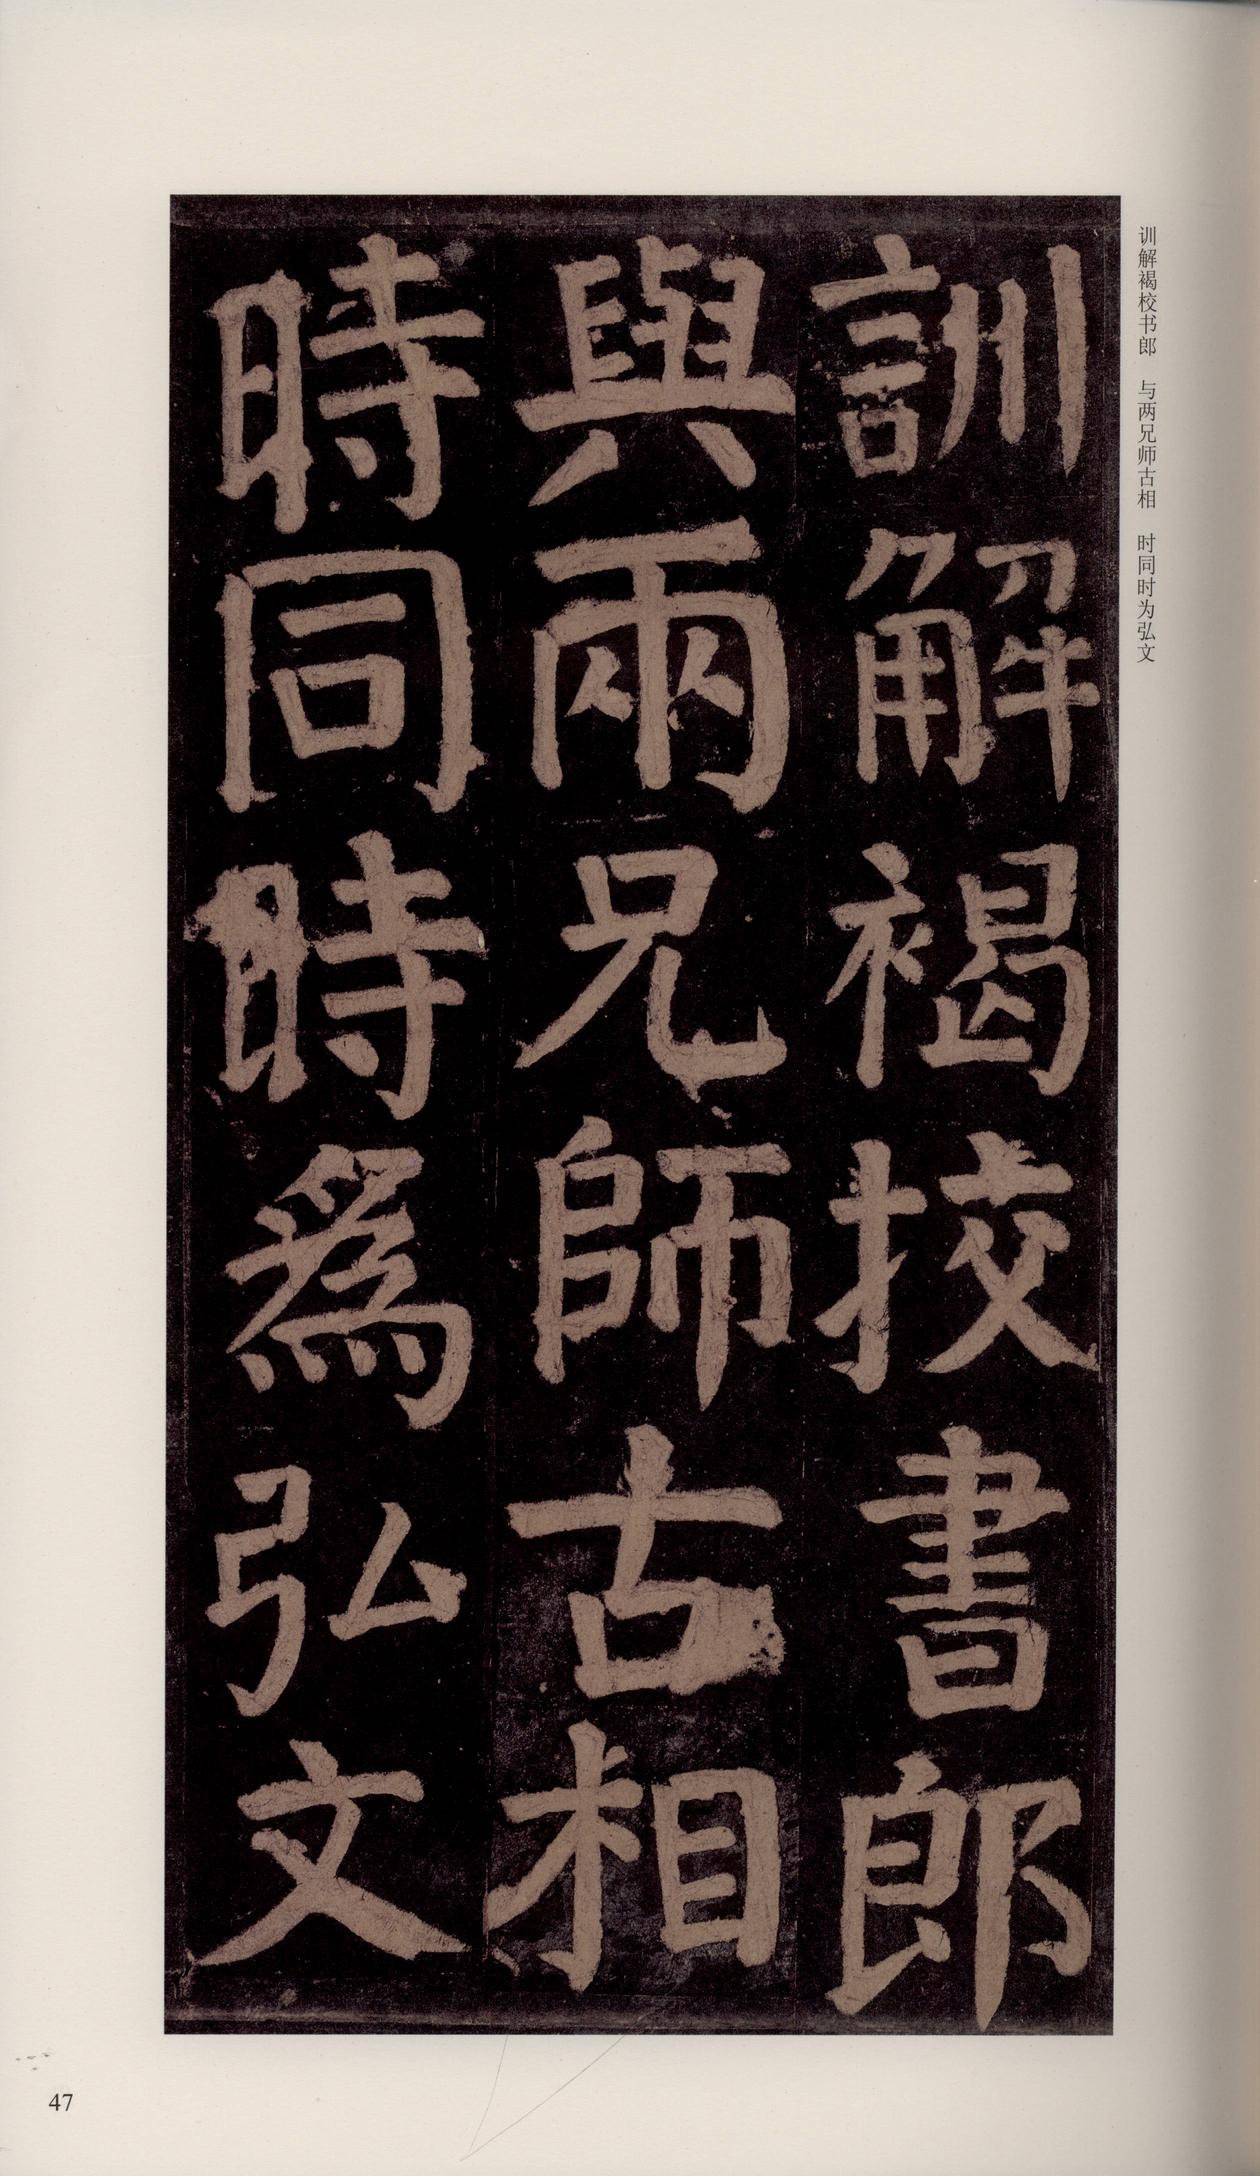 训解褐校书郎 与两兄师古相 时同时为弘文
訓解褐挍書郎
與兩兄師古相
時同時爲弘文
47